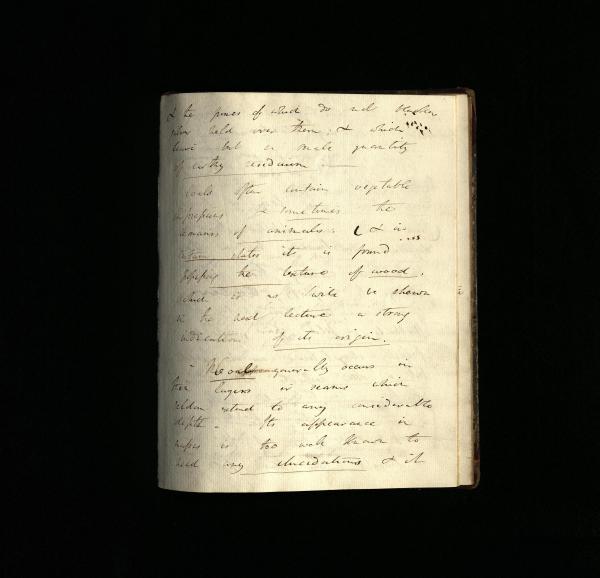 & the fumes of which do not blacken
silver held over them; & which
leave but a small quantity
of earthy residuum
Coals often contain vegetable
impressions & sometimes the
remains of animals; & in
certain states it is found
the texture of wood,
which is as I will be shown
in the next lecture a strong
indication of its origin.
Coal generally occurs in
thin layers or seams which
seldom extend to any considerable
depth. Its appearance in
masses is too well known to
need any elucidations & it